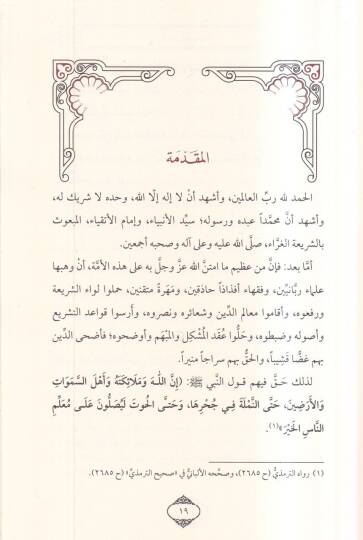 المقَدّمَة
الحمد لله ربِّ العالمين، وأشهد أنْ لا إله إلّا الله، وحده لا شريك له،
وأشهد أنَّ محمَّداً عبده ورسوله؛ سيِّد الأنبياء، وإمام الأتقياء، المبعوث
بالشريعة الغرَّاء، صلَّى الله عليه وعلى آله وصحبه أجمعين.
أمَّا بعد: فإنَّ من عظيم ما امتنَّ الله عزَّ وجلَّ به على هذه الأمَّة، أن وهبها
علماء ربَّانيِّين، وفقهاء أفذاذاً حاذقين، ومَهَرةً متقنين، حملوا لواء الشريعة
ورفعوه، وأقاموا معالم الدِّين وشعائره ونصروه، وأرسوا قواعد التشريع
وأصوله وضبطوه، وحَلُّوا عُقَد المُشْكِل والمبْهَم وأوضحوه؛ فأضحى الدِّين
بهم غضًّا قَشِيباً، والحقُّ بهم سراجاً منيراً.
لذلك حَقَّ فيهم قول النَّبي ﷺ: (إِنَّ اللهَ وَمَلَائِكَتَهُ وَأَهْلَ السَّمَوَاتِ
وَالأَرَضِينَ، حَتَّى النَّمْلَةَ فِي جُحْرِهَا، وَحَتَّى الحُوتَ لَيُصَلُّونَ عَلَى مُعَلِّمِ
النَّاسِ الخَيْرَ)(١).
(١) رواه الترمذيُّ (ح ٢٦٨٥)، وصحَّحه الألبانيُّ في «صحيح الترمذيِّ» (ح ٢٦٨٥).
١٩